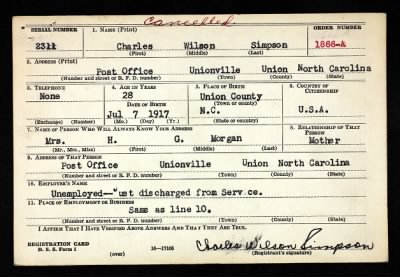 Cancelled
SERIAL NUMBER 1. NAME (Print) ORDER NUMBER
Charles Wilson Simpson 1866-A
(First) (Middle) (Last)
2. ADDRESS (Print)
Post Office Unionville Union North Carolina
(Number and street or R. F. D. number) (Town) (County) (State)
3. TELEPHONE 4. AGE IN YEARS 5. PLACE OF BIRTH 6. COUNTRY OF CITIZENSHIP
None 28 Union County
DATE OF BIRTH (Town or county)
Jul 7 1917 N.C. U.S.A.
(Exchange) (Number) (Mo.) (Day) (Yr.) (State or country)
7. NAME OF PERSON WHO WILL ALWAYS KNOW YOUR ADDRESS 8. RELATIONSHIP OF THAT PERSON
Mrs. H. G. Morgan Mother
(Mr., Mrs., Miss) (First) (Middle) (Last)
9. ADDRESS OF THAT PERSON
Post Office Unionville Union North Carolina
(Number and street or R. F. D. number) (Town) (County) (State)
10. EMPLOYER'S NAME
Unemployed--"ust discharged from Serv ce.
11. PLACE OF EMPLOYMENT OR BUSINESS
Same as line 10.
(Number and street or R. F. D. number) (Town) (County) (State)
I AFFIRM THAT I HAVE VERIFIED ABOVE ANSWERS AND THAT THEY ARE TRUE.
REGISTRATION CARD
D. S. S. Form 1 (over) 16-17105 Charles Wilson Simpson
(Registrant's signature)